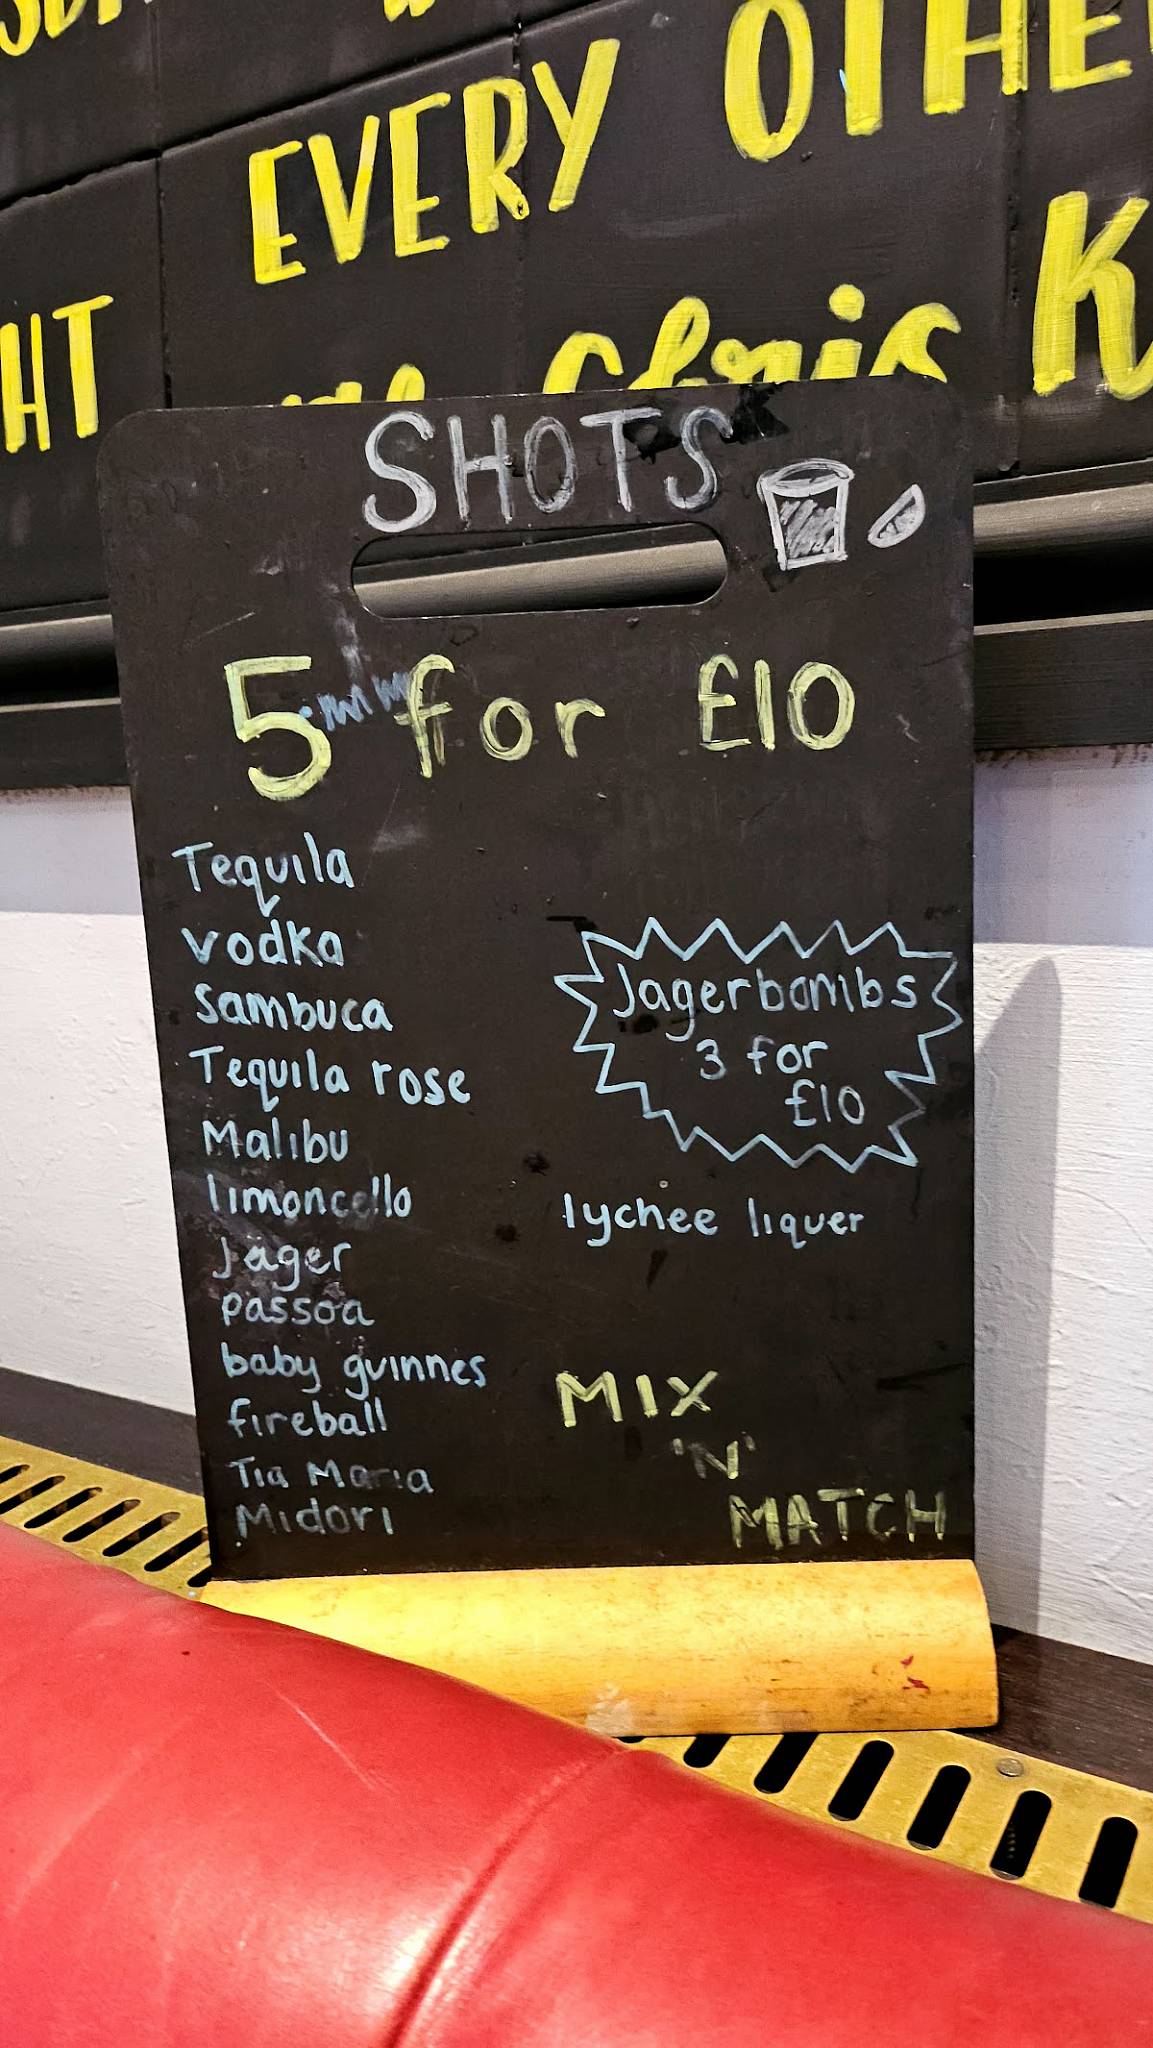 EVERY
HT
Chris
SHOTS
5 for £10
Tequila
vodka
sambuca
Tequila rose
Malibu
limoncello
Jager
passoa
baby guinnes
fireball
Tia Maria
Midori
Jagerbombs
3 for
£10
lychee liquer
MIX
'N'
MATCH